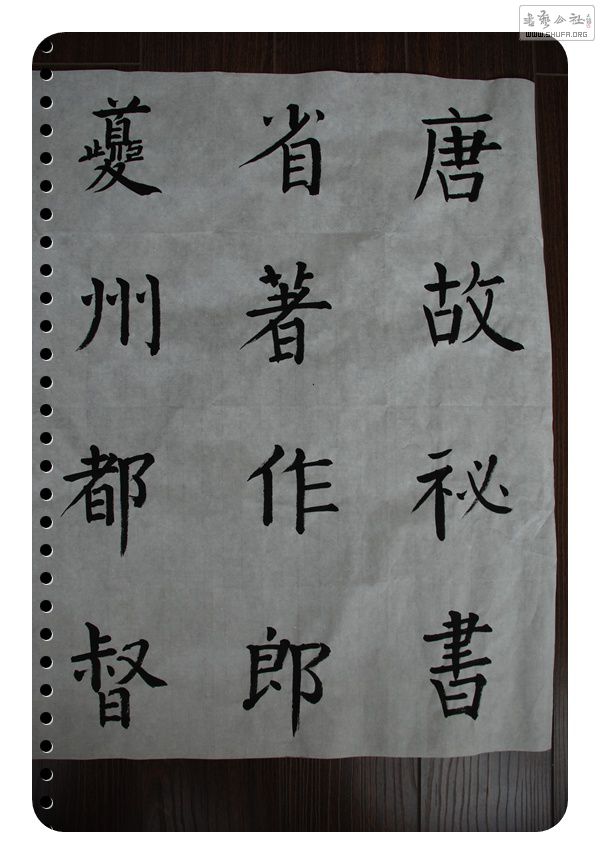 唐故祕書
省著作郎
夔州都督
書藝公社
WWW.SHUFA.ORG